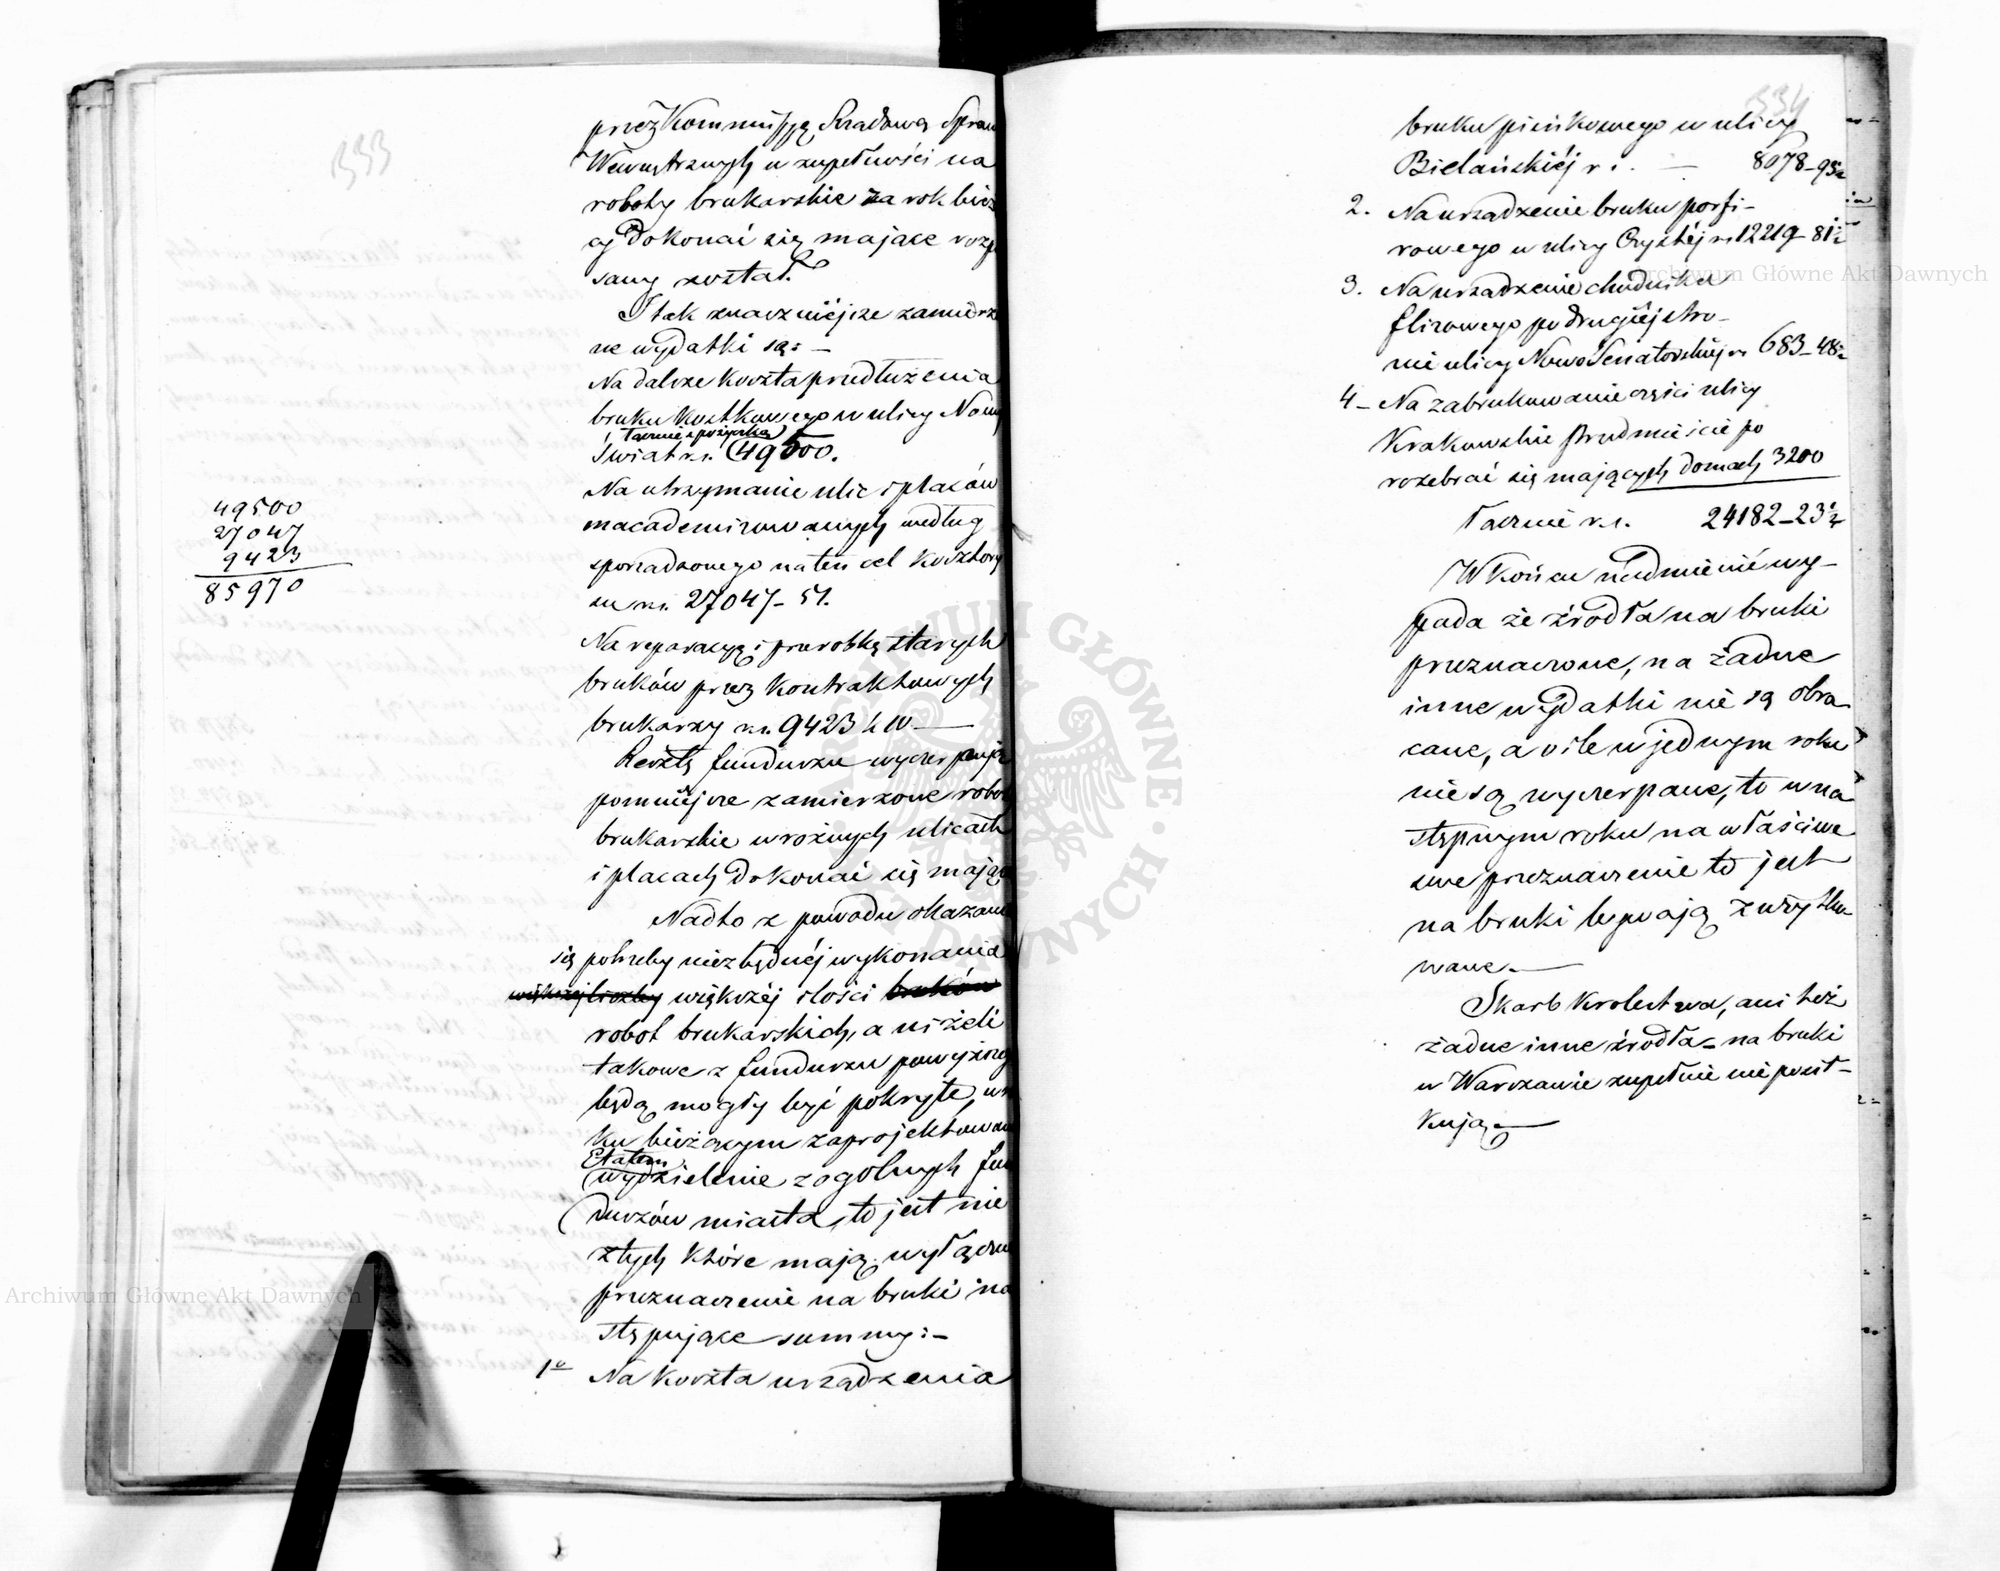 333
przez Kommissyą Rządową Spraw
Wewnętrznych w zupełności na
roboty brukarskie za rok bież
cy dokonać się mające rozp
sany został.
I tak znaczniejsze zamierz
ne wydatki są: —
Na dalsze koszta przedłużenia
bruku kostkowego w ulicy Nowy
łącznie z pożyczką
Świat rs. (49500.
Na utrzymanie ulic i placów
macademizowanych według
sporządzonego na ten cel kosztory
su rs. 27047 – 51.
Na reparacyą i przerobkę starych
bruków przez kontraktowych
brukarzy rs. 9423 k 10 —
Resztę funduszu wyczerpują
pomniejsze zamierzone robot
brukarskie w rożnych ulicach
i placach dokonać się mając
Nadto z powodu okazane
się potrzeby niezbędnéj wykonania
większej liczby większéj ilości bruków
robot brukarskich, a niżeli
takowe z funduszu powyższeg
będą mogły być pokryte, w r
ku bieżącym zaprojektowan
Etatem
wydzielenie z ogolnych fun
duszów miasta, to jest nie
z tych które mają wyłączn
przeznaczenie na bruki na
stępujące summy: –
1o Na koszta urządzenia
49500
27047
9423
85970
334
bruku pieńkowego w ulicy
Bielańskiéj r: . — 8078 – 93½
2. Na urządzenie bruku porfi–
rowego w ulicy Czystéj rs. 12219 – 81½
3. Na urządzenie chodnika
flizowego po drugiéj stro–
nie ulicy Nowo Senatorskiéj rs 683 – 48½
4 – Na zabrukowanie części ulicy
Krakowskie Przedmieście po
rozebrać się mających domach 3200
Łącznie rs. 24182 – 23½
W końcu nadmienić wy–
pada że źrodła na bruki
przeznaczone, na żadne
inne wydatki nie są obra
cane, a o ile w jednym roku
nie są wyczerpane, to w na
stępnym roku na właściwe
swe przeznaczenie to jest
na bruki bywają zużytko
wane. —
Skarb Krolestwa, ani też
żadne inne źrodła – na bruki
w Warszawie zupełnie nie posił–
kują —
Archiwum Główne Akt Dawnych
Archiwum Główne Akt Dawnych
ARCHIWUM GŁÓWNE AKT DAWNYCH